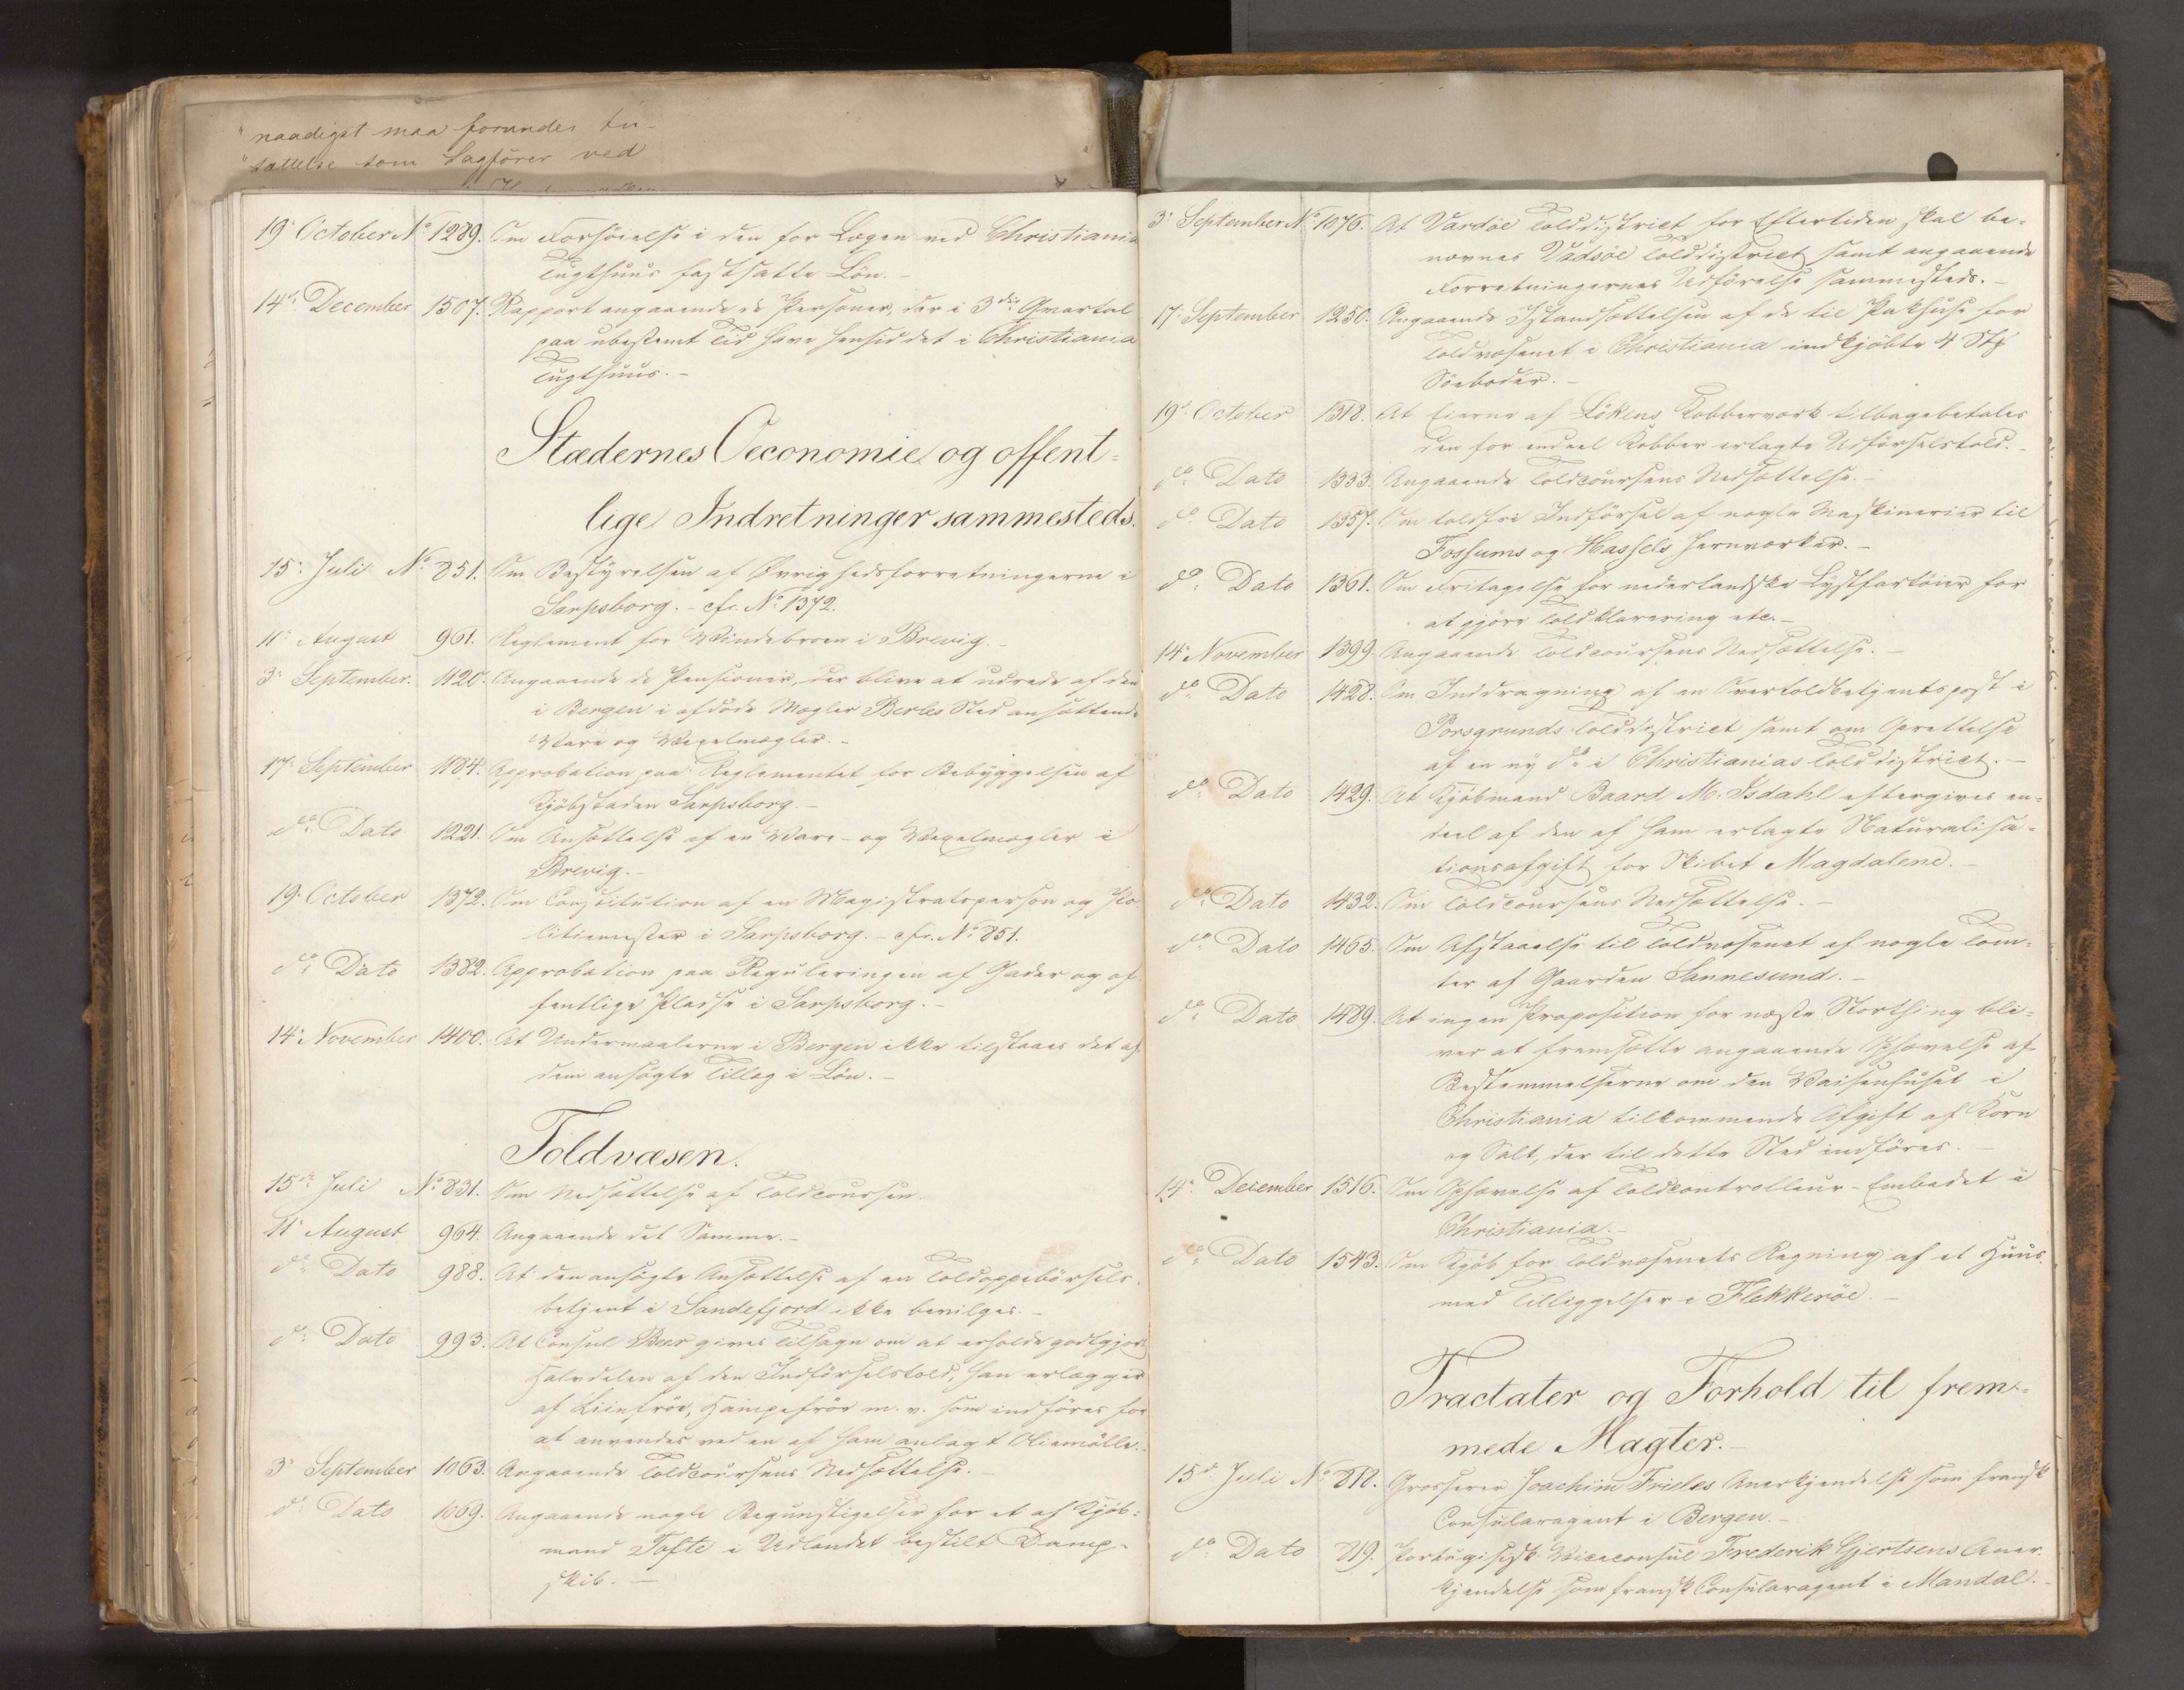 "naadigst maa forundes An-
"sættelse som Sagfører ved
19de October No 1289. Om Forhöielse i den for Lægen ved Christiania
Tugthuus fastsatte Lön. -
14de December 1507. Rapport angaaende de Personer, der i 3die Qvartal
paa ubestemt Tid have hensiddet i Christiania
Tugthuus. -
Stædernes Oeconomie og offent-
lige Indretninger sammesteds.
15de Juli No 851. Om Bestyrelsen af Øvrighedsforretningerne i
Sarpsborg. - cfr. No 1372.
11te August 961. Reglement for Vindebroen i Brevig. -
3die September. 1120. Angaaende de Pensioner, der blive at udrede af den
i Bergen i afdøde Mægler Berles Sted ansættende
Vare og Vexelmægler. -
17de September 1184. Approbation paa Reglementet for Bebyggelsen af
Kjöbstaden Sarpsborg. -
do Dato 1221. Om Ansættelse af en Vare- og Vexelmægler i
Brevig. -
19de October 1372. Om Constitution af en Magistratsperson og Po
litiemester i Sarpsborg. - cfr. No 851.
do Dato 1382. Approbation paa Reguleringen af Gader og of
fentlige Pladse i Sarpsborg. -
14de November 1400. At Undermaalerne i Bergen ikke tilstaaes det af
dem ansögte Tillæg i Lön. -
Toldvæsen.
15de Juli No 831. Om Nedsættelse af Toldcoursen.
11te August 964. Angaaende det Samme. -
do Dato 988. At den ansögte Ansættelse af en Toldoppebörsels-
betjent i Sandefjord ikke bevilges. -
do Dato 993. At Consul Beer gives Tilsagn om at erholde godtgjort
Halvdelen af den Indförselstold, han erlægger
af Liinfröe, Hampefröe m. v. som indföres for
at anvendes ved en af ham anlagt Oliemölle.
3die September 1063. Angaaende Toldcoursens Nedsættelse. -
do Dato 1069. Angaaende nogle Begunstigelser for et af Kjöb-
mand Tofte i Udlandet bestilt Damp-
skib. -
3die September No 1076. At Vardöe Tolddistrict for Eftertiden skal be-
nævnes Vadsöe Tolddistrict samt angaaende
Forretningernes Udförelse sammesteds. -
17de September 1250. Angaaende Istandsættelsen af de til Pakhuse for
Toldvæsenet i Christiania indkjöbte 4 Stk
Söeboder. -
19de October 1318. At Eierne af Lökens Kobberværk tilbagebetales
den for endeel Kobber erlagte Udförselstold. -
do Dato 1333. Angaaende Toldcoursens Nedsættelse. -
do Dato 1357. Om toldfri Indförsel af nogle Maskinerier til
Fossums og Hassels Jernværker. -
do Dato 1361. Om Fritagelse for nederlandske Lystfartöier for
at gjöre Toldklarering etc. -
14de November 1399. Angaaende Toldcoursens Nedsættelse. -
do Dato 1428. Om Inddragning af en Overtoldbetjentspost i
Porsgrunds Tolddistrict samt om Oprettelse
af en ny do i Christianias Tolddistrict. -
do Dato 1429. At Kjöbmand Baard M. Isdahl eftergives en-
deel af den af ham erlagte Naturalisa-
tionsafgift for Skibet Magdalene. -
do Dato 1432. Om Toldcoursens Nedsættelse. -
do Dato 1465. Om Afstaaelse til Toldvæsenet af nogle Tom-
ter af Gaarden Sannesund. -
do Dato 1489. At ingen Proposition for næste Storthing bli-
ver at fremsætte angaaende Ophævelse af
Bestemmelserne om den Vaisenhuset i
Christiania tilkommende Afgift af Korn
og Salt, der til dette Sted indföres. -
14de December 1516. Om Ophævelse af Toldcontrolleur-Embedet i
Christiania. -
do Dato 1543. Om Kjöb for Toldvæsenets Regning af et Huus
med Tilliggelser i Flekkeröe. -
Tractater og Forhold til frem-
mede Magter. -
15de Juli No 818. Grosserer Joachim Frieles Anerkjendelse som fransk
Consularagent i Bergen. -
do Dato 819. Portugisisk Viceconsul Frederik Gjertsens Aner-
kjendelse som fransk Consularagent i Mandal. -